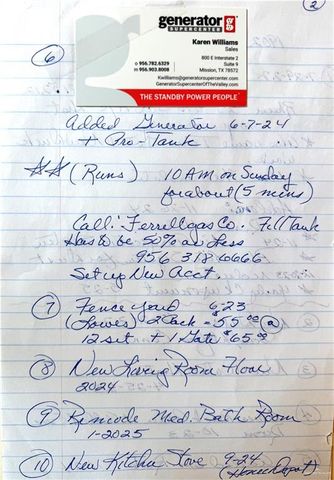 2
6
generator
SUPERCENTER
Karen Williams
Sales
800 E Interstate 2
Suite 9
Mission, TX 78572
O 956.782.6329
M 956.903.8008
Kwilliams@generatorsupercenter.com
GeneratorSupercenterOfTheValley.com
THE STANDBY POWER PEOPLE
Added Generator 6-7-24
+ Pro-Tank
(Runs) 10 AM on Sunday
for about (5 mins)
Call: Ferrellgas Co. Fill Tank
Has to be 50% or less
956 318 6666
Set up New Acct.
7 Fence yard 6-23
(Lowes) 2 Pack = $55.00 @
12 set + 1 Gate $65.00
8 New Living Room Floor
2024
9 Remode Med. Bath Room
1-2025
10 New Kitchen Stove 9-24
(Home Depot)